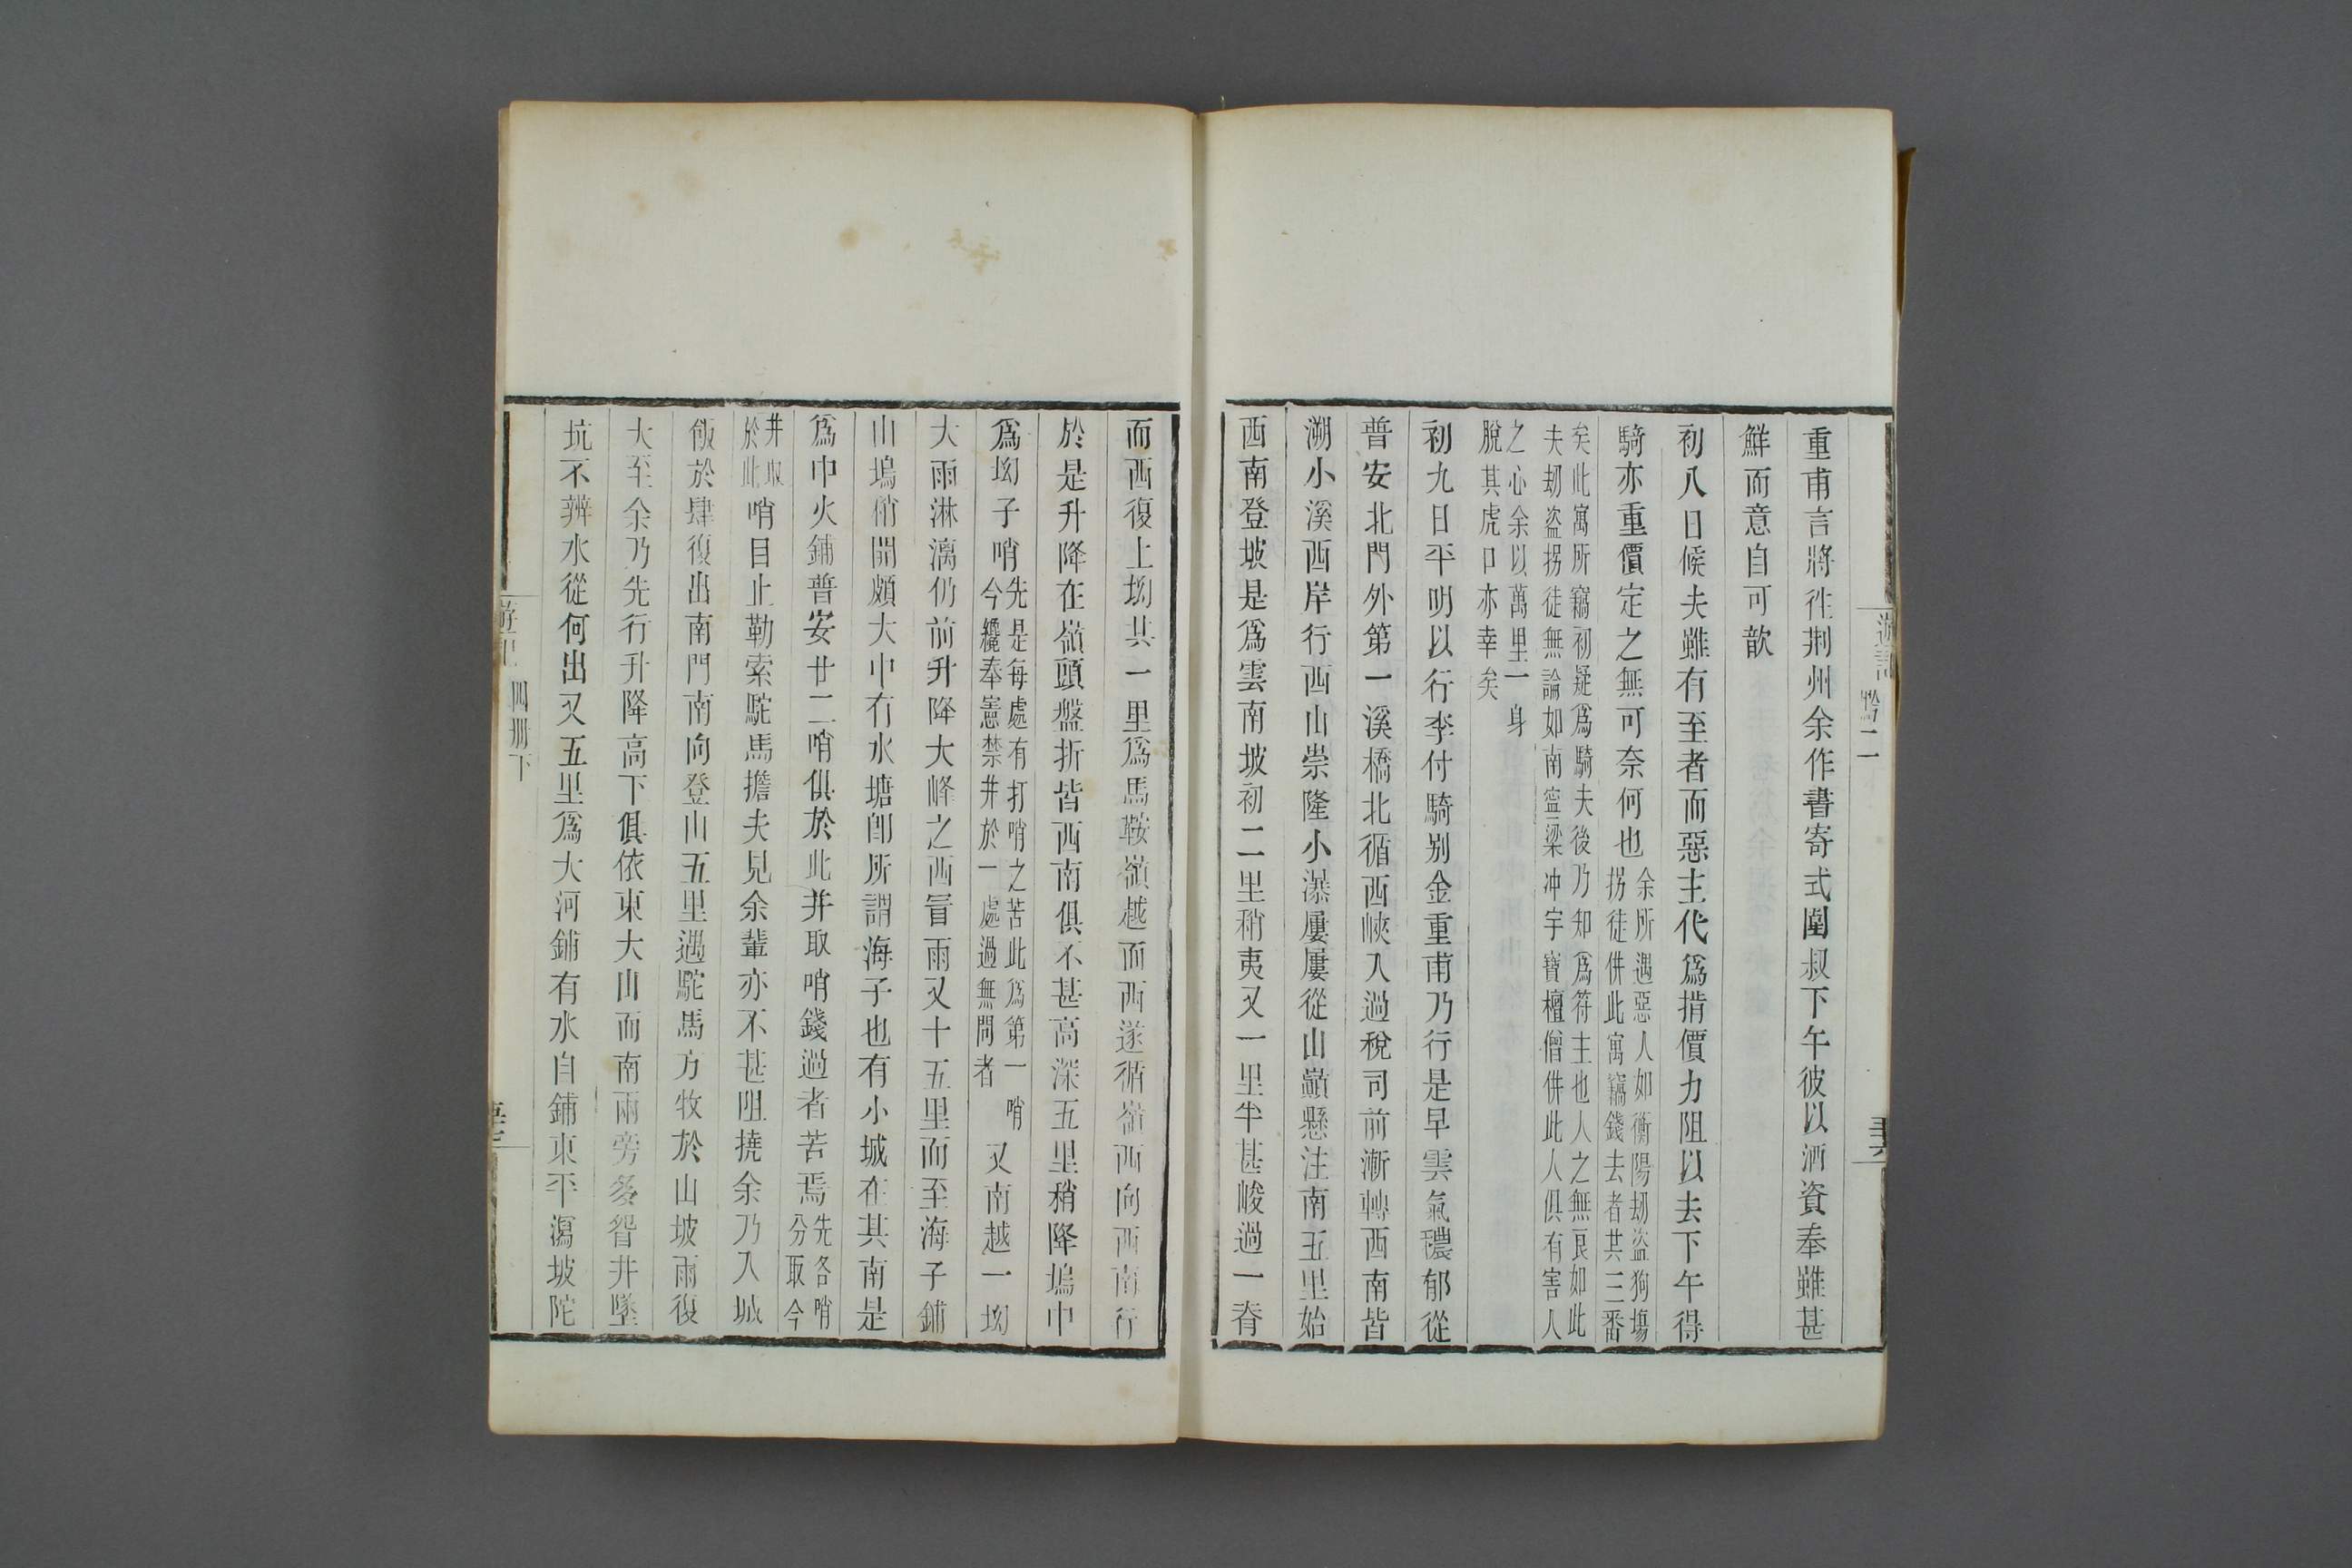 重甫言將徃荆州余作書寄式圍叔下午彼以酒資奉雖甚
鮮而意自可歆
初八日候夫雖有至者而惡主代爲掯價力阻以去下午得
騎亦重價定之無可奈何也余所遇惡人如衡陽刼盜狗塲
拐徒併此寓竊錢去者共三番
矣此寓所竊初疑爲騎夫後乃知爲符主也人之無良如此
夫刼盜拐徒無論如南寧梁冲宇寶檀僧併此人俱有害人
之心余以萬里一身
脫其虎口亦幸矣
初九日平明以行李付騎别金重甫乃行是早雲氣穠郁從
普安北門外第一溪橋北循西峽入過稅司前漸轉西南皆
溯小溪西岸行西山崇隆小瀑屢屢從山巔懸注南五里始
西南登坡是爲雲南坡初二里稍夷又一里半甚峻過一脊
而西復上坳共一里爲馬鞍嶺越而西遂循嶺西向西南行
於是升降在嶺頭盤折皆西南俱不甚高深五里稍降塢中
爲坳子哨先是每處有打哨之苦此爲第一哨
今纔奉憲禁并於一處過無問者又南越一坳
大雨淋漓仍前升降大峰之西冒雨又十五里而至海子鋪
山塢稍開頗大中有水塘卽所謂海子也有小城在其南是
爲中火鋪普安廿二哨俱於此并取哨錢過者苦焉先各哨
分取今
并取
於此哨目止勒索駝馬擔夫見余輩亦不甚阻撓余乃入城
飯於肆復出南門南向登山五里遇駝馬方牧於山坡雨復
大至余乃先行升降高下俱依東大山而南兩旁多眢井墜
坑不辨水從何出又五里爲大河鋪有水自鋪東平瀉坡陀
遊記
四冊下